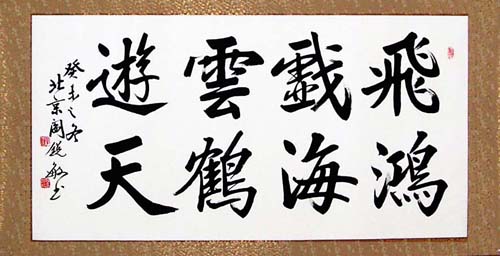 飛鴻
戲海
雲鶴
遊天
癸未之冬
北京閻锐敏书